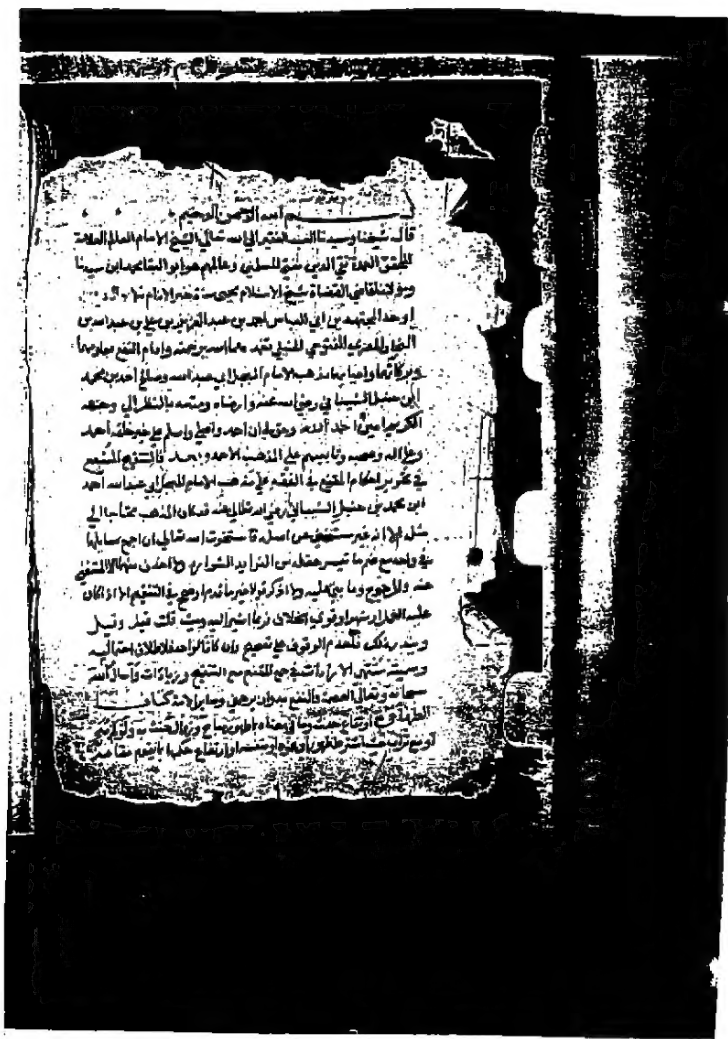 بسم الله الرحمن الرحيم
قال شيخنا وسيدنا العبد الفقير الى الله تعالى الشيخ الامام العالم العلامة
المحقق تقي الدين مفتي المسلمين وعالمهم هو ابو البقا محمد ابن سيدنا
ومولانا قاضي القضاة شيخ الاسلام
اوحد المجتهدين ابى العباس احمد بن عبد العزيز بن علي بن
النجار المصري الفتوحي الحنبلي تغمدهما الله برحمته وادام النفع بعلومهما
وبركاتهما واحيا بهما مذهب الامام المبجل ابي عبد الله احمد بن محمد
ابن حنبل الشيباني رضي الله عنه وارضاه ومتعه بالنظر الى وجهه
الكريم امين احمد الله وحق لي ان احمد واصلي واسلم على خير خلقه احمد
وعلى اله وصحبه وتابعيهم على المذهب الاحمد وبعد فالتنقيح المشبع
في تحرير احكام المقنع في الفقه على مذهب الامام المبجل ابي عبد الله احمد
ابن محمد بن حنبل الشيباني رضي الله تعالى عنه قد كان المذهب محتاجا الى
مثله الا انه غير مستغن عن اصله فاستخرت الله تعالى ان اجمع مسايلهما
في واحد مع ضم ما تيسر عقله من الفوايد الشوارد ولا احذف منهما الا المستغنى
عنه والمرجوح وما بني عليه ولا اذكر قولا غير ما قدم او صحح في التنقيح الا اذا كان
عليه العمل او شهر او قوي الخلاف فربما اشير اليه وحيث قلت قيل وقيل
ويندر ذلك فلعدم الوقوف على تصحيح وان كانا لواحد فلاطلاق احتماليه
وسميته منتهى الارادات في جمع المقنع مع التنقيح وزيادات واسال الله
سبحانه وتعالى العصمة والنفع به وان يرحمني وساير الامة كتاب
الطهارة ارتفاع حدث وما في معناه بماء طهور مباح وزوال خبث به ولو لم يبح
او مع تراب طهور او نحوه او بنفسه او ارتفاع حكمهما بما يقوم مقامه